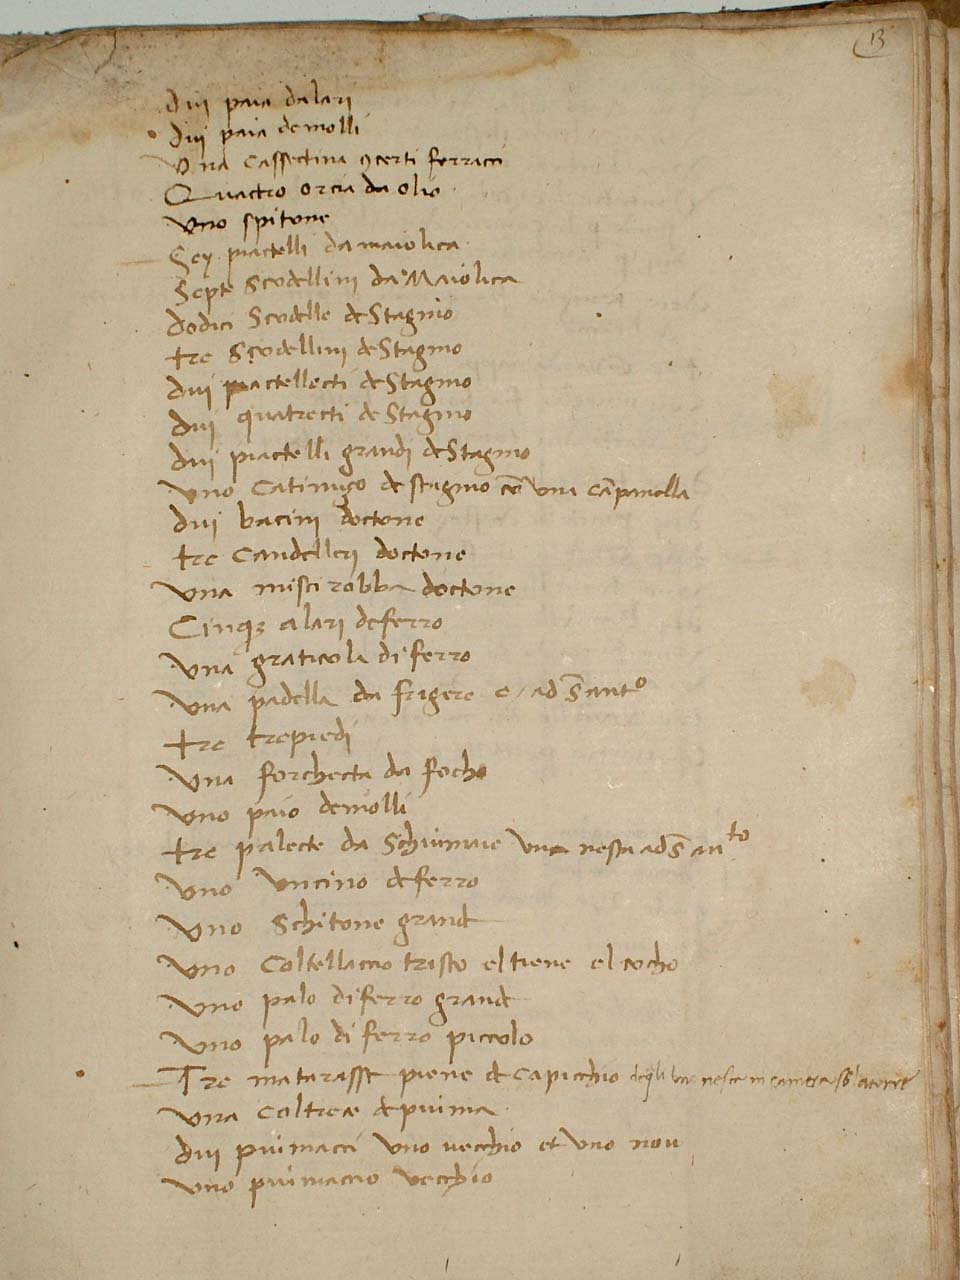 13
dui paia dalari
dui paia de molli
Una cassectina 9 certi ferracci
Quactro orcia da olio
Uno spitone
Sey piactelli da maiolica
Septe Scudellini da Maiolica
dodici Scudelle de Stagnio
tre Scudellini de Stagnio
dui piactellecti de Stagnio
dui quatrecti de Stagnio
dui piactelli grandi de Stagnio
Uno Catinuço de stagnio cō una cāpanella
dui bacini doctone
tre Candelleri doctone
Una miscirobba doctone
Cinqꝫ alari de ferro
Una graticola di ferro
Una padella da frigere e / ad S anto
tre trepiedi
Una forchecta da focho
Uno paio de molli
tre palecte da Schiumare una nesta ad S anto
Uno Uncino de ferro
Uno Schitone grand
Uno Coltellaccio tristo el tiene el cocho
Uno palo di ferro grand
Uno palo di ferro piccolo
Tre matarasse piene de Capicchio nesta in camera
Una Coltre de piuma
dui piumacci Uno vecchio et Uno nou
Uno piumaccio vecchio